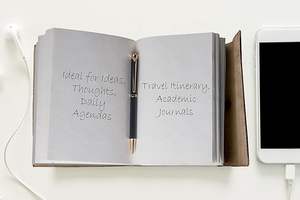 Ideal for Ideas,
Thoughts,
Daily
Agendas
Travel Itinerary,
Academic
Journals